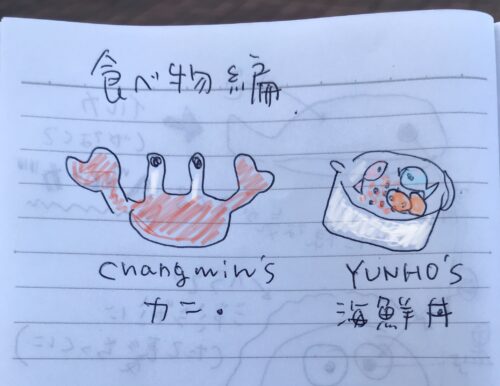 食べ物編.
Changmin's
カニ.
YUNHO'S
海鮮丼